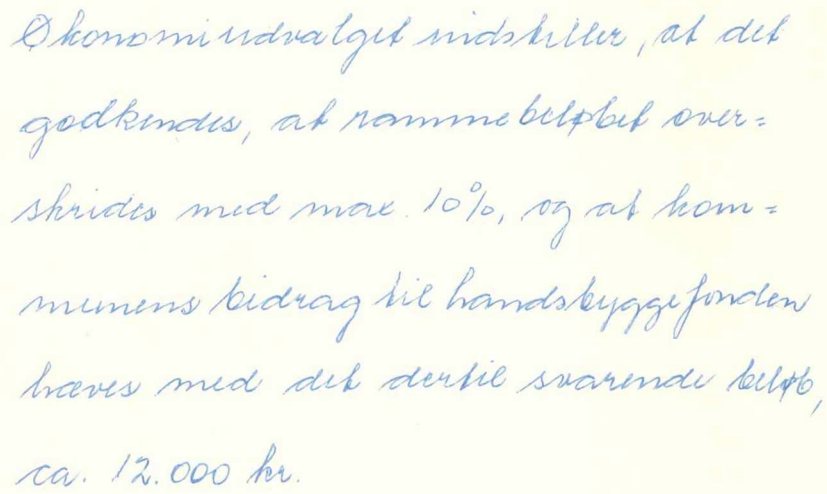 Økonomiudvalget indstiller, at det
godkendes, at rammebeløbet over=
skrides med max. 10%, og at kom=
munens bidrag til landsbyggefonden
hæves med det dertil svarende beløb,
ca. 12.000 kr.